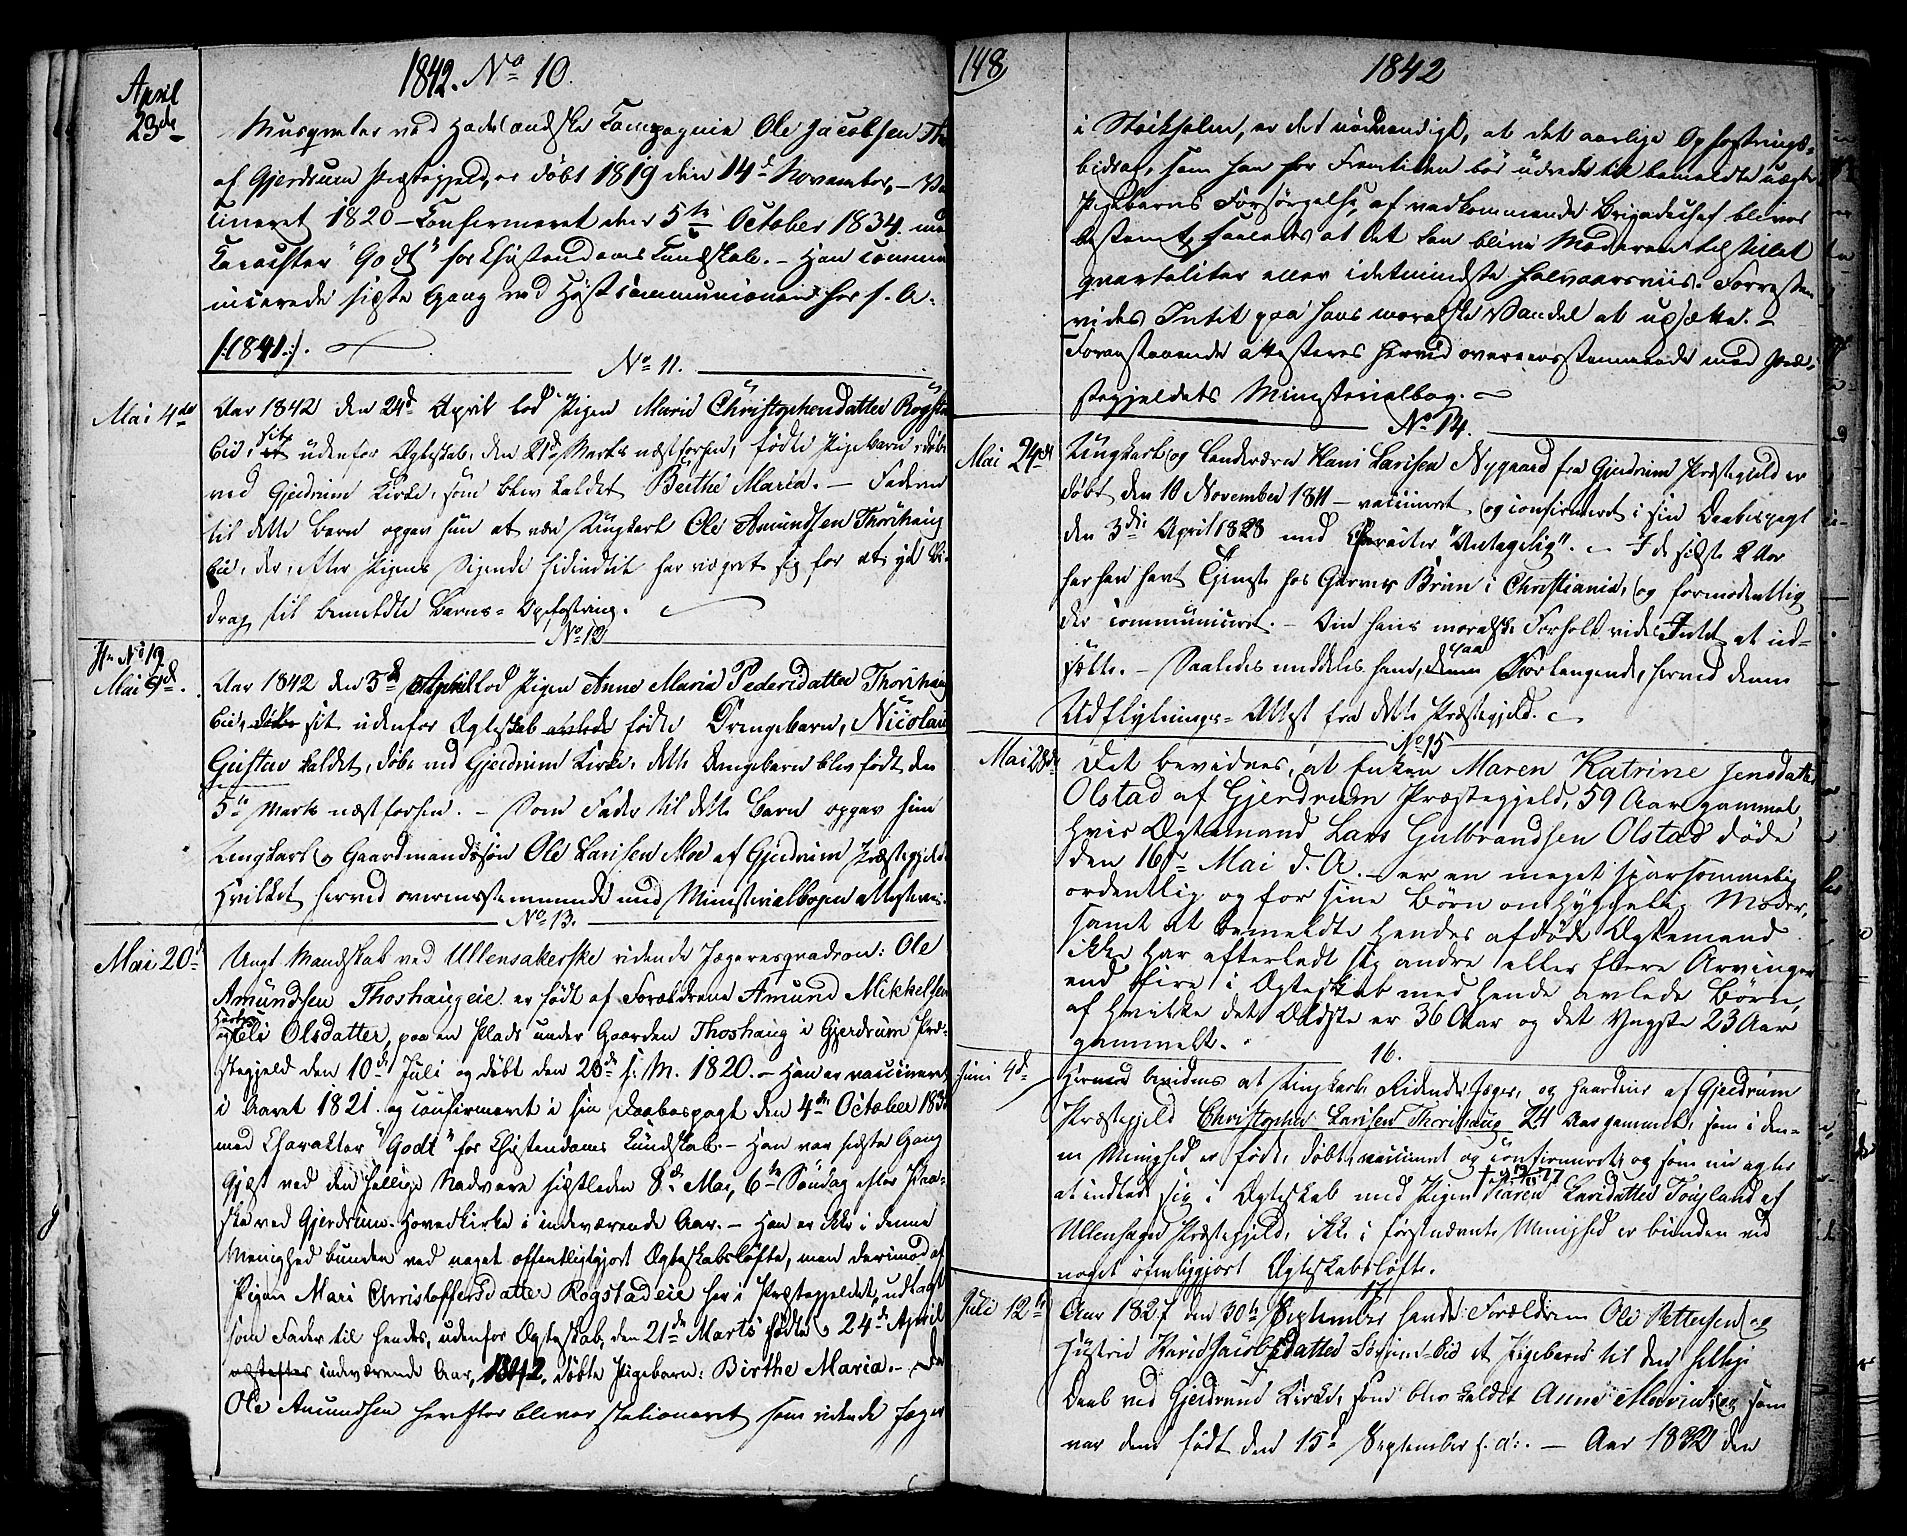 1842. No 10.
April
23de
Musqueter ved Hadelandske Compagnie Ole Jacobsen
af Gjerdrum Præstegjeld, er døbt 1819 den 14d November, –
cineret 1820 – Confirmeret den 5te October 1834. med
Karacter "Godt" for Christendoms Kundskab. – Han commu
nicerede sidste Gang ved Høst Communionen her f. A.
/:1841:/.
No 11.
Mai 4de
Aar 1842 den 24d April lod Pigen Marie Christophersdatter Rogsta
eie, sit udenfor Ægteskab, den 21de Marts næstforhen, fødte Pigebarn døbe
ved Gjerdrum Kirke, som blev kaldet Berthe Maria. – Faderen
til dette Barn opgav hun at være Ungkarl Ole Amundsen Thorshaug
eie, der, efter Pigens Sigende hidindtil har vægret sig for at yde Bi-
drag til bemeldte Barns-Opfostring.
No 12
Mai
Aar 1842 den 3d April lod Pigen Anne Maria Pedersdatter Thorshaug
eie, sit udenfor Ægteskab fødte Drengebarn, Nicolai
Gustav kaldet, døbe ved Gjerdrum Kirke, dette Drengebarn blev født den
5te Marts næstforhen. – Som Fader til dette Barn opgav hun
Ungkarl og Gaardmandssøn Ole Larsen Moe af Gjerdrum Præstegjeld.
Hvilket herved overensstemmende med Ministerialbogen attesteres.
No 13.
Mai 20d
Ungt Mandskab ved Ullensakerske ridende Jægeresquadron: Ole
Amundsen Thoshaugeie er født af Forældrene Amund Mikkelsen
og Hustru Eli Olsdatter, paa en Plads under Gaarden Thoshaug i Gjerdrum Præ-
stegjeld den 10de Juli og døbt den 23de s. M. 1820. – Han er vaccineret
i Aaret 1821. og confirmeret i sin Daabspagt den 4de October 183
med Charakter "Godt" for Christendoms Kundskab. – Han var sidste Gang
Gjæst ved den hellige Nadvere sidstleden 8de Mai, 6te Søndag efter Paa-
ske ved Gjerdrums Hovedkirke i indeværende Aar. – Han er ikke i denne
Menighed bunden ved noget offentliggjort Ægteskabsløfte, men derimod af
Pigen Mari Christoffersdatter Rogstadeie her i Præstegjeldet, udlagt
som Fader til hendes, udenfor Ægteskab, den 21de Marts fødte, 24de April
indeværende Aar, 1842, døbte Pigebarn: Birthe Maria. – Da
Ole Amundsen herefter bliver stationeret som ridende Jæger
148
1842
i Stockholm, er det nødvendigt, at det aarlige Opfostrings-
bidrag, som han for Fremtiden bør udrede til bemeldte uægte
Pigebarns Forsørgelse, af vedkommende Brigadechef bliver
bestemt, saaledes at det kan blive Moderen tilstillet
qvartaliter eller i det mindste halvaarsviis. Forresten
vides Intet paa hans moralske Vandel at udsætte. –
Foranstaaende attesteres herved overensstemmende med Præ-
stegjeldets Ministerialbog.
No 14.
Mai 24de
Ungkarl og Landeværn Hans Larsen Nygaard fra Gjerdrum Præstegjeld er
døbt den 10 November 1811 – vaccineret og confirmeret i sin Daabspagt
den 3die April 1828 med Charakter "Antagelig". – I de sidste 2 Aar
har han havt Tjeneste hos Garver Brun i Christiania, og formodentlig
der communiceret. – Om hans moralske Forhold vides Intet at ud-
sætte. – Saaledes meddeles ham, paa Forlangende, herved denne
Udflytnings-Attest fra dette Præstegjeld.
No 15
Mai 28de
Det bevidnes, at Enken Maren Katrine Jensdatter
Olstad af Gjerdrum Præstegjeld, 59 Aar gammel,
hvis Ægtemand Lars Gulbrandsen Olstad døde
den 16de Mai d. A. – er en meget sparsommelig
ordentlig og for sine Børn omhyggelig Moder,
samt at bemeldte hendes afdøde Ægtemand
ikke har efterladt sig andre eller flere Arvinger
end fire i Ægteskab med hende avlede Børn,
af hvilke det Ældste er 36 Aar og det Yngste 23 Aar
gammelt.
16.
Juni 4d
Hermed bevidnes at Ungkarl, Ridende Jæger, og af Gjerdrum
Præstegjeld Christopher Larsen Thorshaug 24 Aar gammel, som i den-
ne Menighed er født, døbt, vaccineret og confirmeret, og som nu agter
at indlade sig i Ægteskab med Pigen Karen Larsdatter af
Ullensager Præstegjeld, ikke i førstnævnte Menighed er bunden ved
noget offentliggjort Ægteskabsløfte.
17
Juli 12te
Aar 1827 den 30te September havde Forældrene Ole Pettersen og
Hustrue Kari Jacobsdatter et Pigebarn til den hellige
Daab ved Gjerdrum Kirke, som blev kaldet Anne og som
var den født den 15d September s. A. – Aar 1832 den